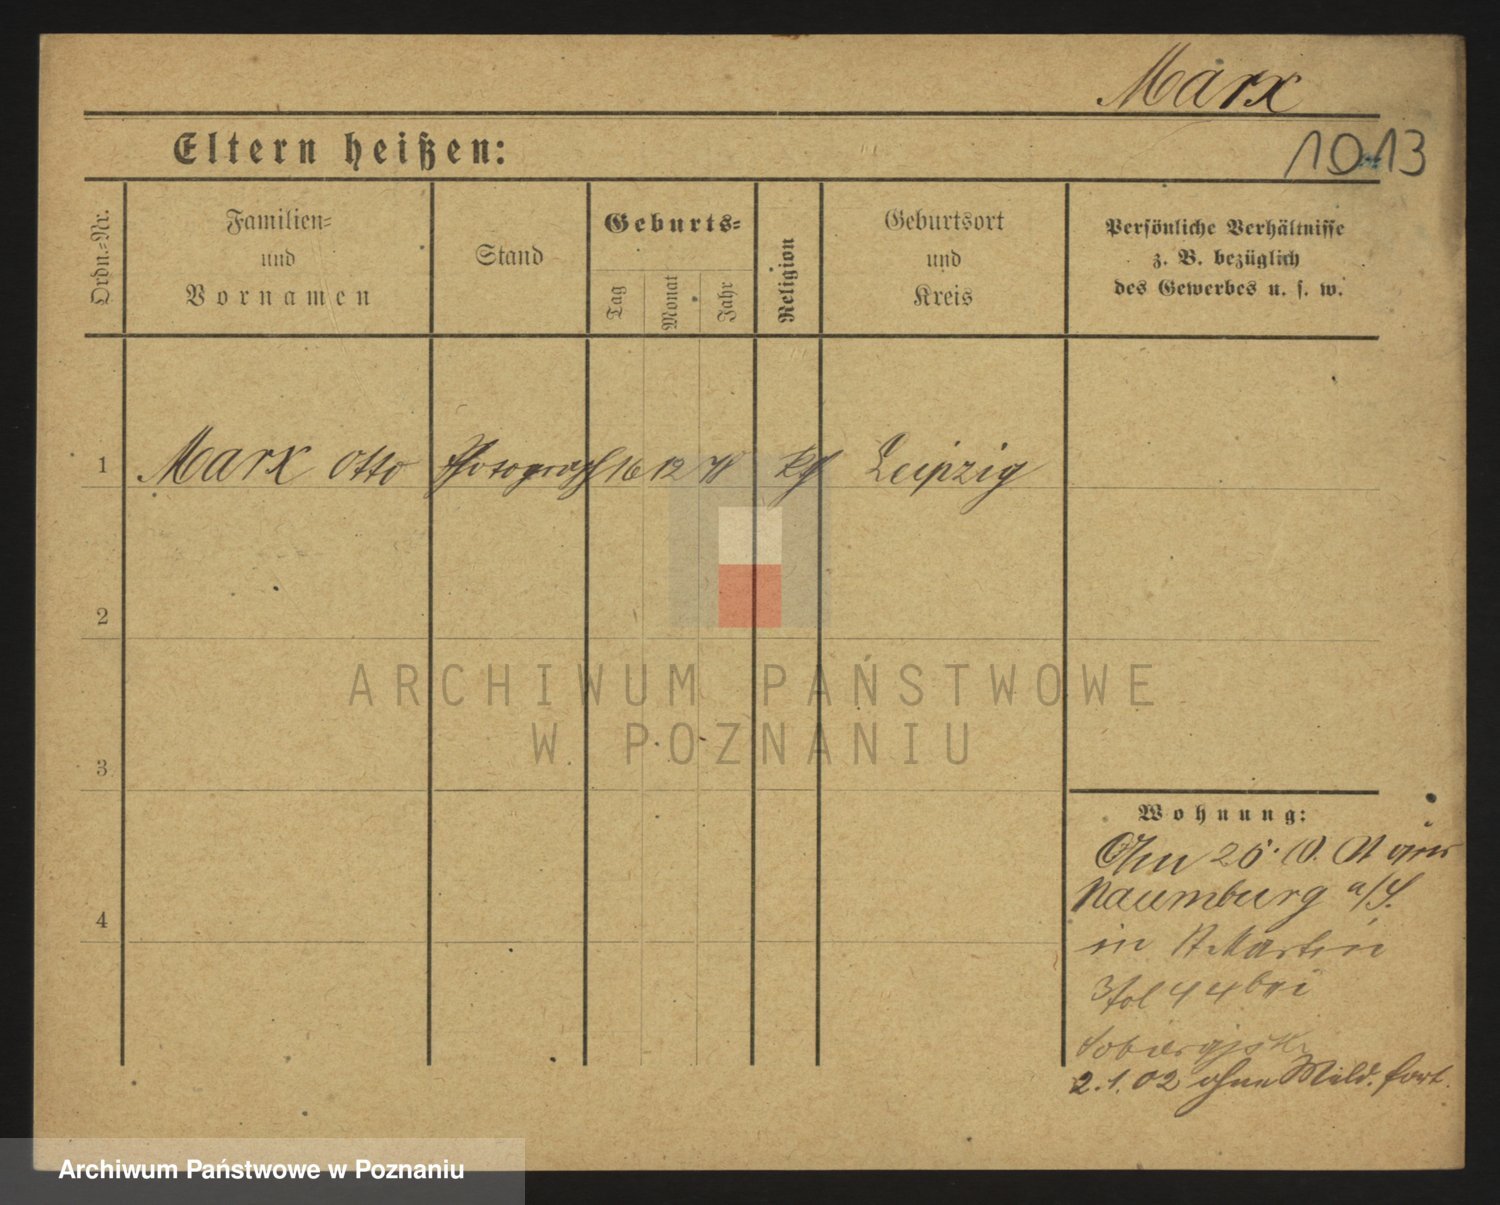 Marx
Eltern heißen:
1013
Ordn.=Nr.
Familien=
und
Vornamen
Stand
Geburts=
Tag
Monat
Jahr
Religion
Geburtsort
und
Kreis
Persönliche Verhältnisse
z. B. bezüglich
des Gewerbes u. s. w.
1 Marx Otto Photograph 16 12 78 Leipzig
2
3
4
Wohnung:
26. 10. 01 von
Naumburg a/S.
in St Martin
44 bei
2.1.02 ohne Meld. fort.
ARCHIWUM PAŃSTWOWE
W POZNANIU
Archiwum Państwowe w Poznaniu